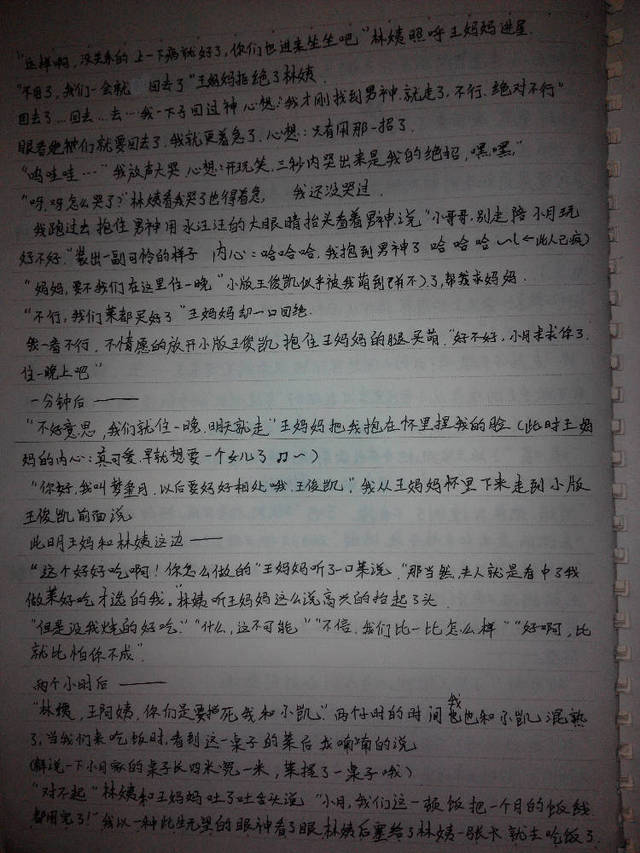 "这样啊，没关系的 上一下病就好了，你们也进来坐坐吧"林姨照呼王妈妈进屋.
"不用了，我们一会就 回去了"王妈妈拒绝了林姨.
回去了…回去…去…我一下子回过神 心想:我才刚找到男神.就走了，不行.绝对不行"
眼看他们就要回去了.我就更着急了.心想:只有用那一招了.
"呜哇哇…"我放声大哭 心想:开玩笑.三秒内哭出来是我的绝招,嘿嘿,"
"呀.呀怎么哭了?"林姨看我哭了也得着急. 我还没哭过.
我跑过去 抱住 男神 用水汪汪的大眼睛抬头看着男神,说"小哥哥,别走陪 小月玩
好不好."装出一副可怜的样子 内心:哈哈哈.我抱到男神了 哈 哈 哈 ~(←此人已疯)
"妈妈,要不我们在这里住一晚"小版王俊凯似乎被我萌到了,帮我求妈妈.
"不行,我们菜都买好了"王妈妈却一口回绝.
我一看不行.不情愿的放开小版王俊凯 抱住王妈妈的腿买萌."好不好,小月求求你了.
住一晚上吧"
一分钟后 ———
"不好意思,我们就住一晚.明天就走"王妈妈把我抱在怀里捏我的脸(此时王妈
妈的内心:真可爱.早就想要一个女儿了 ♫~)
"你好,我叫梦奎月.以后要好好相处哦.王俊凯."我从王妈妈怀里下来走到小版
王俊凯前面说
此明王妈和林姨这边 ——
"这个好好吃啊!你怎么做的"王妈妈听了一口菜说."那当然,夫人就是看中了我
做菜好吃才选的我,"林姨听王妈妈这么说高兴的抬起了头.
"但是没我烧的好吃.""什么,这不可能""不信.我们比一比怎么样""好啊,比
就比怕你不成".
两个小时后 ———
"林姨,王阿姨,你们是要撑死我和小凯."两个小时的时间我也和小凯 混熟
了,当我们来吃饭时,看到这一桌子的菜后我喃喃的说
(解说一下小月家的桌子长四米宽一米,菜摆了一桌子哦)
"对不起"林姨和王妈妈吐了吐舌头说 "小月,我们这一顿饭把一个月的饭钱
都用完了!"我以一种此生无望的眼神看了眼林姨后塞给了林姨一张卡 就去吃饭了.